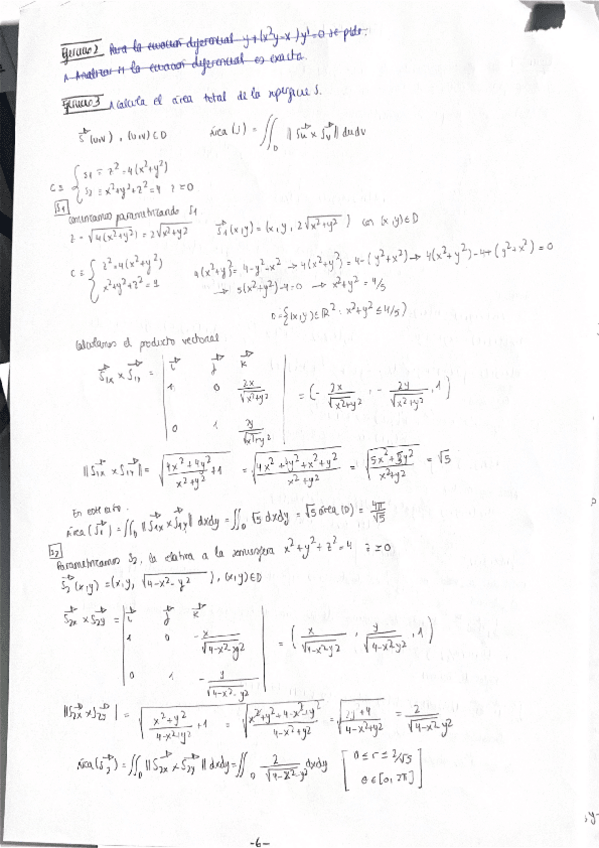 Ejercicio 2 Para la ecuación diferencial y+(x²y-x)y'=0 se pide:
1. Analizar si la ecuación diferencial es exacta.
Ejercicio 3 Calcula el área total de la superficie S.
S(u,v), (u,v)∈D   área(S) = ∬_D ||Su × Sv|| dudv
C ≡ { S1 ≡ z²=4(x²+y²)
S2 ≡ x²+y²+z²=4 z≥0
S1 Comenzamos parametrizando S1
z = √4(x²+y²) = 2√x²+y²   S1(x,y) = (x, y, 2√x²+y²) con (x,y)∈D
C ≡ { z²=4(x²+y²)   4(x²+y²) = 4-y²-x² → 4(x²+y²) = 4-(y²+x²) → 4(x²+y²)-4+(y²+x²) = 0
x²+y²+z²=4   → 5(x²+y²)-4=0 → x²+y² = 4/5
D = {(x,y)∈ℝ² : x²+y² ≤ 4/5}
Calculamos el producto vectorial
S1x × S1y = | i j k |
| 1 0 2x/√x²+y² | = (- 2x/√x²+y², - 2y/√x²+y², 1)
| 0 1 2y/√x²+y² |
||S1x × S1y|| = √(4x²+4y²/x²+y² + 1) = √(4x²+4y²+x²+y²/x²+y²) = √(5x²+5y²/x²+y²) = √5
En este caso.
área(S1) = ∬_D ||S1x × S1y|| dxdy = ∬_D √5 dxdy = √5 área(D) = 4π/√5
S2
Parametrizamos S2, la relativa a la semiesfera x²+y²+z²=4 z≥0
S2(x,y) = (x, y, √4-x²-y²), (x,y)∈D
S2x × S2y = | i j k |
| 1 0 -x/√4-x²-y² | = (x/√4-x²-y², y/√4-x²-y², 1)
| 0 1 -y/√4-x²-y² |
||S2x × S2y|| = √(x²+y²/4-x²-y² + 1) = √(x²+y²+4-x²-y²/4-x²-y²) = = 2/√4-x²-y²
área(S2) = ∬_D ||S2x × S2y|| dxdy = ∬_D 2/√4-x²-y² dxdy [ 0≤r≤2/√5
θ∈[0,2π] ]
-6-